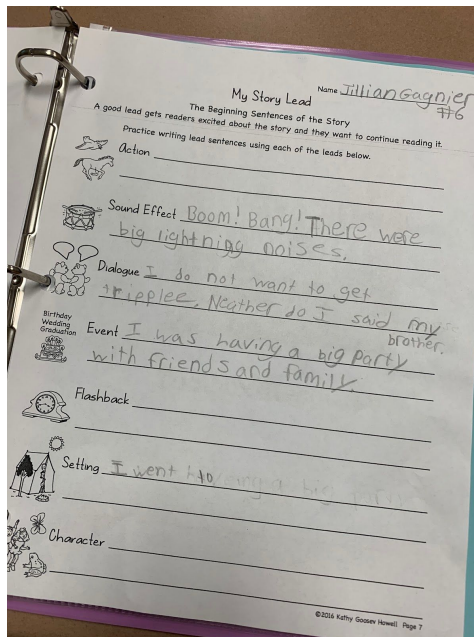 Name Jillian Gagnier
#6
My Story Lead
The Beginning Sentences of the Story
A good lead gets readers excited about the story and they want to continue reading it.
Practice writing lead sentences using each of the leads below.
Action
Sound Effect Boom! Bang! There were
big lightning noises.
Dialogue I do not want to get
tripplee. Neather do I said my
brother.
Birthday
Wedding
Graduation
Event I was having a big party
with friends and family.
Flashback
Setting I went to
Character
©2016 Kathy Goosev Howell Page 7